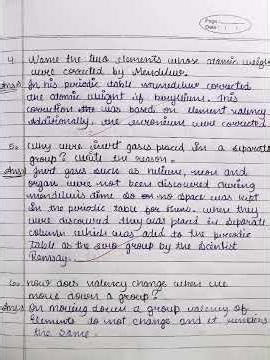 Page
Date
4. Name the two elements whose atomic weight
were corrected by Mendeleev.
Ans In his periodic table corrected
the atomic weight of beryllium. This
correction was based on element valency
Additionally, the were corrected
5. Why were inert gases placed in a separate
group? Write the reason.
Ans Inert gases such as helium, neon and
argon were not been discovered during
time so no space was kept
in the periodic table for them. when they
were discovered they was placed in separate
column which was add to the periodic
table as the zero group by the scientist
Ramsay.
6. How does valency change when we
move down a group?
Ans On moving down a group valency of
elements do not change and it
the same.